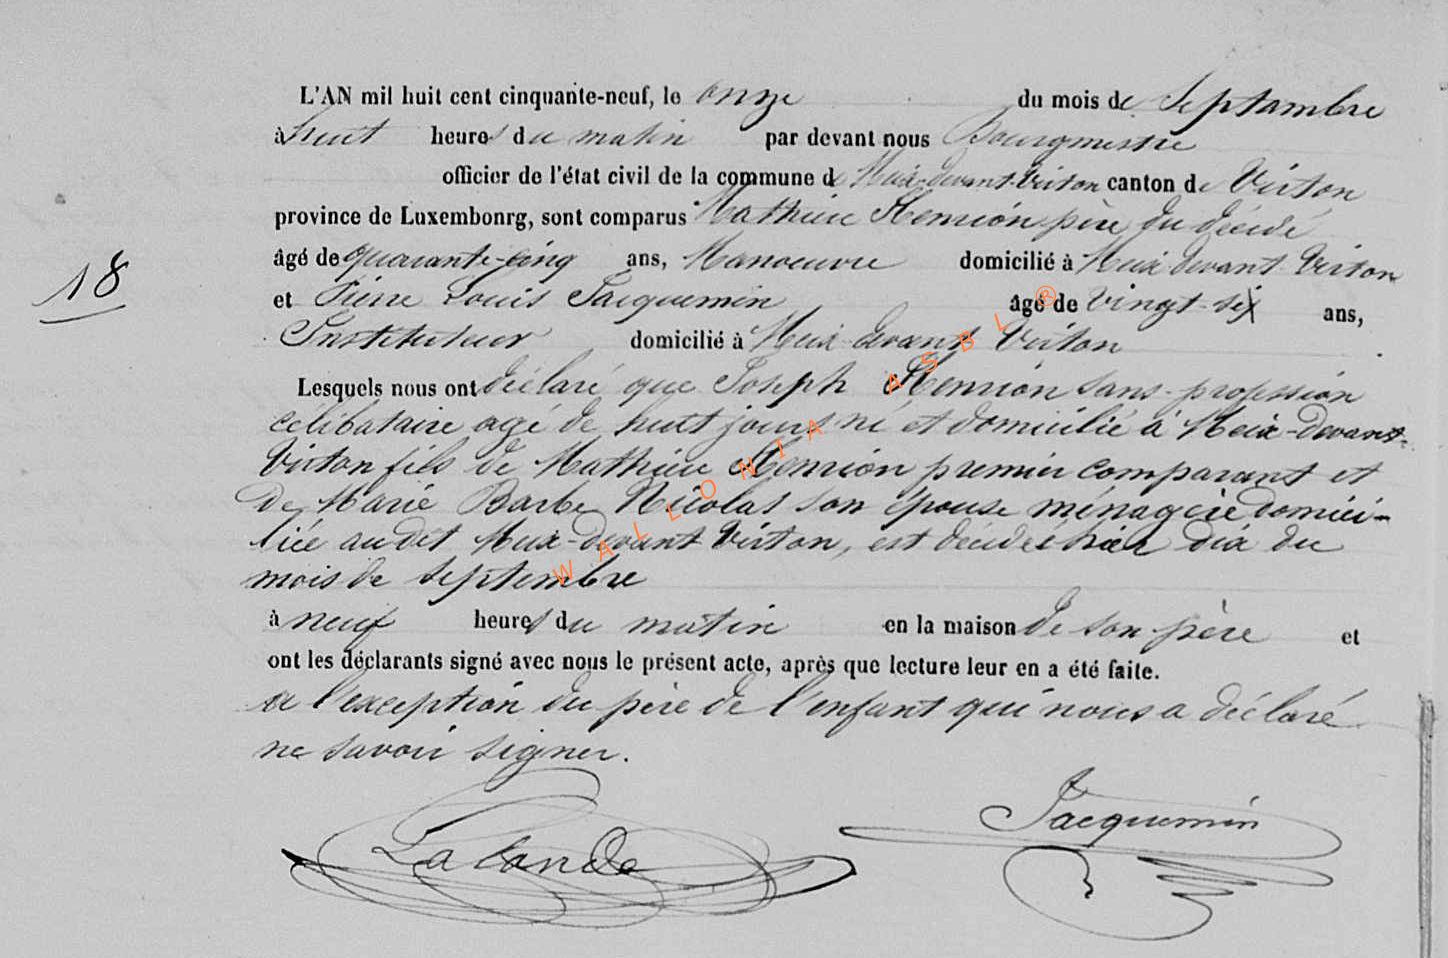 L'AN mil huit cent cinquante-neuf, le onze du mois de Septambre
à huit heures du matin par devant nous Bourgmestre
officier de l'état civil de la commune de Meix-devant-Virton canton de Virton
province de Luxembonrg, sont comparus Mathieu Henrion père du décédé
âgé de quarante-cinq ans, Manoeuvre domicilié à Meix devant Virton
18
et Pierre Louis Jacquemin âgé de vingt-six ans,
Instituteur domicilié à Meix devant Virton
Lesquels nous ont déclaré que Joseph Henrion sans profession
célibataire agé de huit jours né et domicilié à Meix-Devant-
Virton fils de Mathieu Henrion premier comparant et
de Marie Barbe Nicolas son épouse ménagère domici-
liée au dit Meix-devant-Virton, est décédé hier dix du
mois de septembre
à neuf heures du matin en la maison de son père et
ont les déclarants signé avec nous le présent acte, après que lecture leur en a été faite.
a l'exception du père de l'enfant qui nous a déclaré
ne savoir signer.
Jacquemin
Lalande
WALLONIA ASBL ®